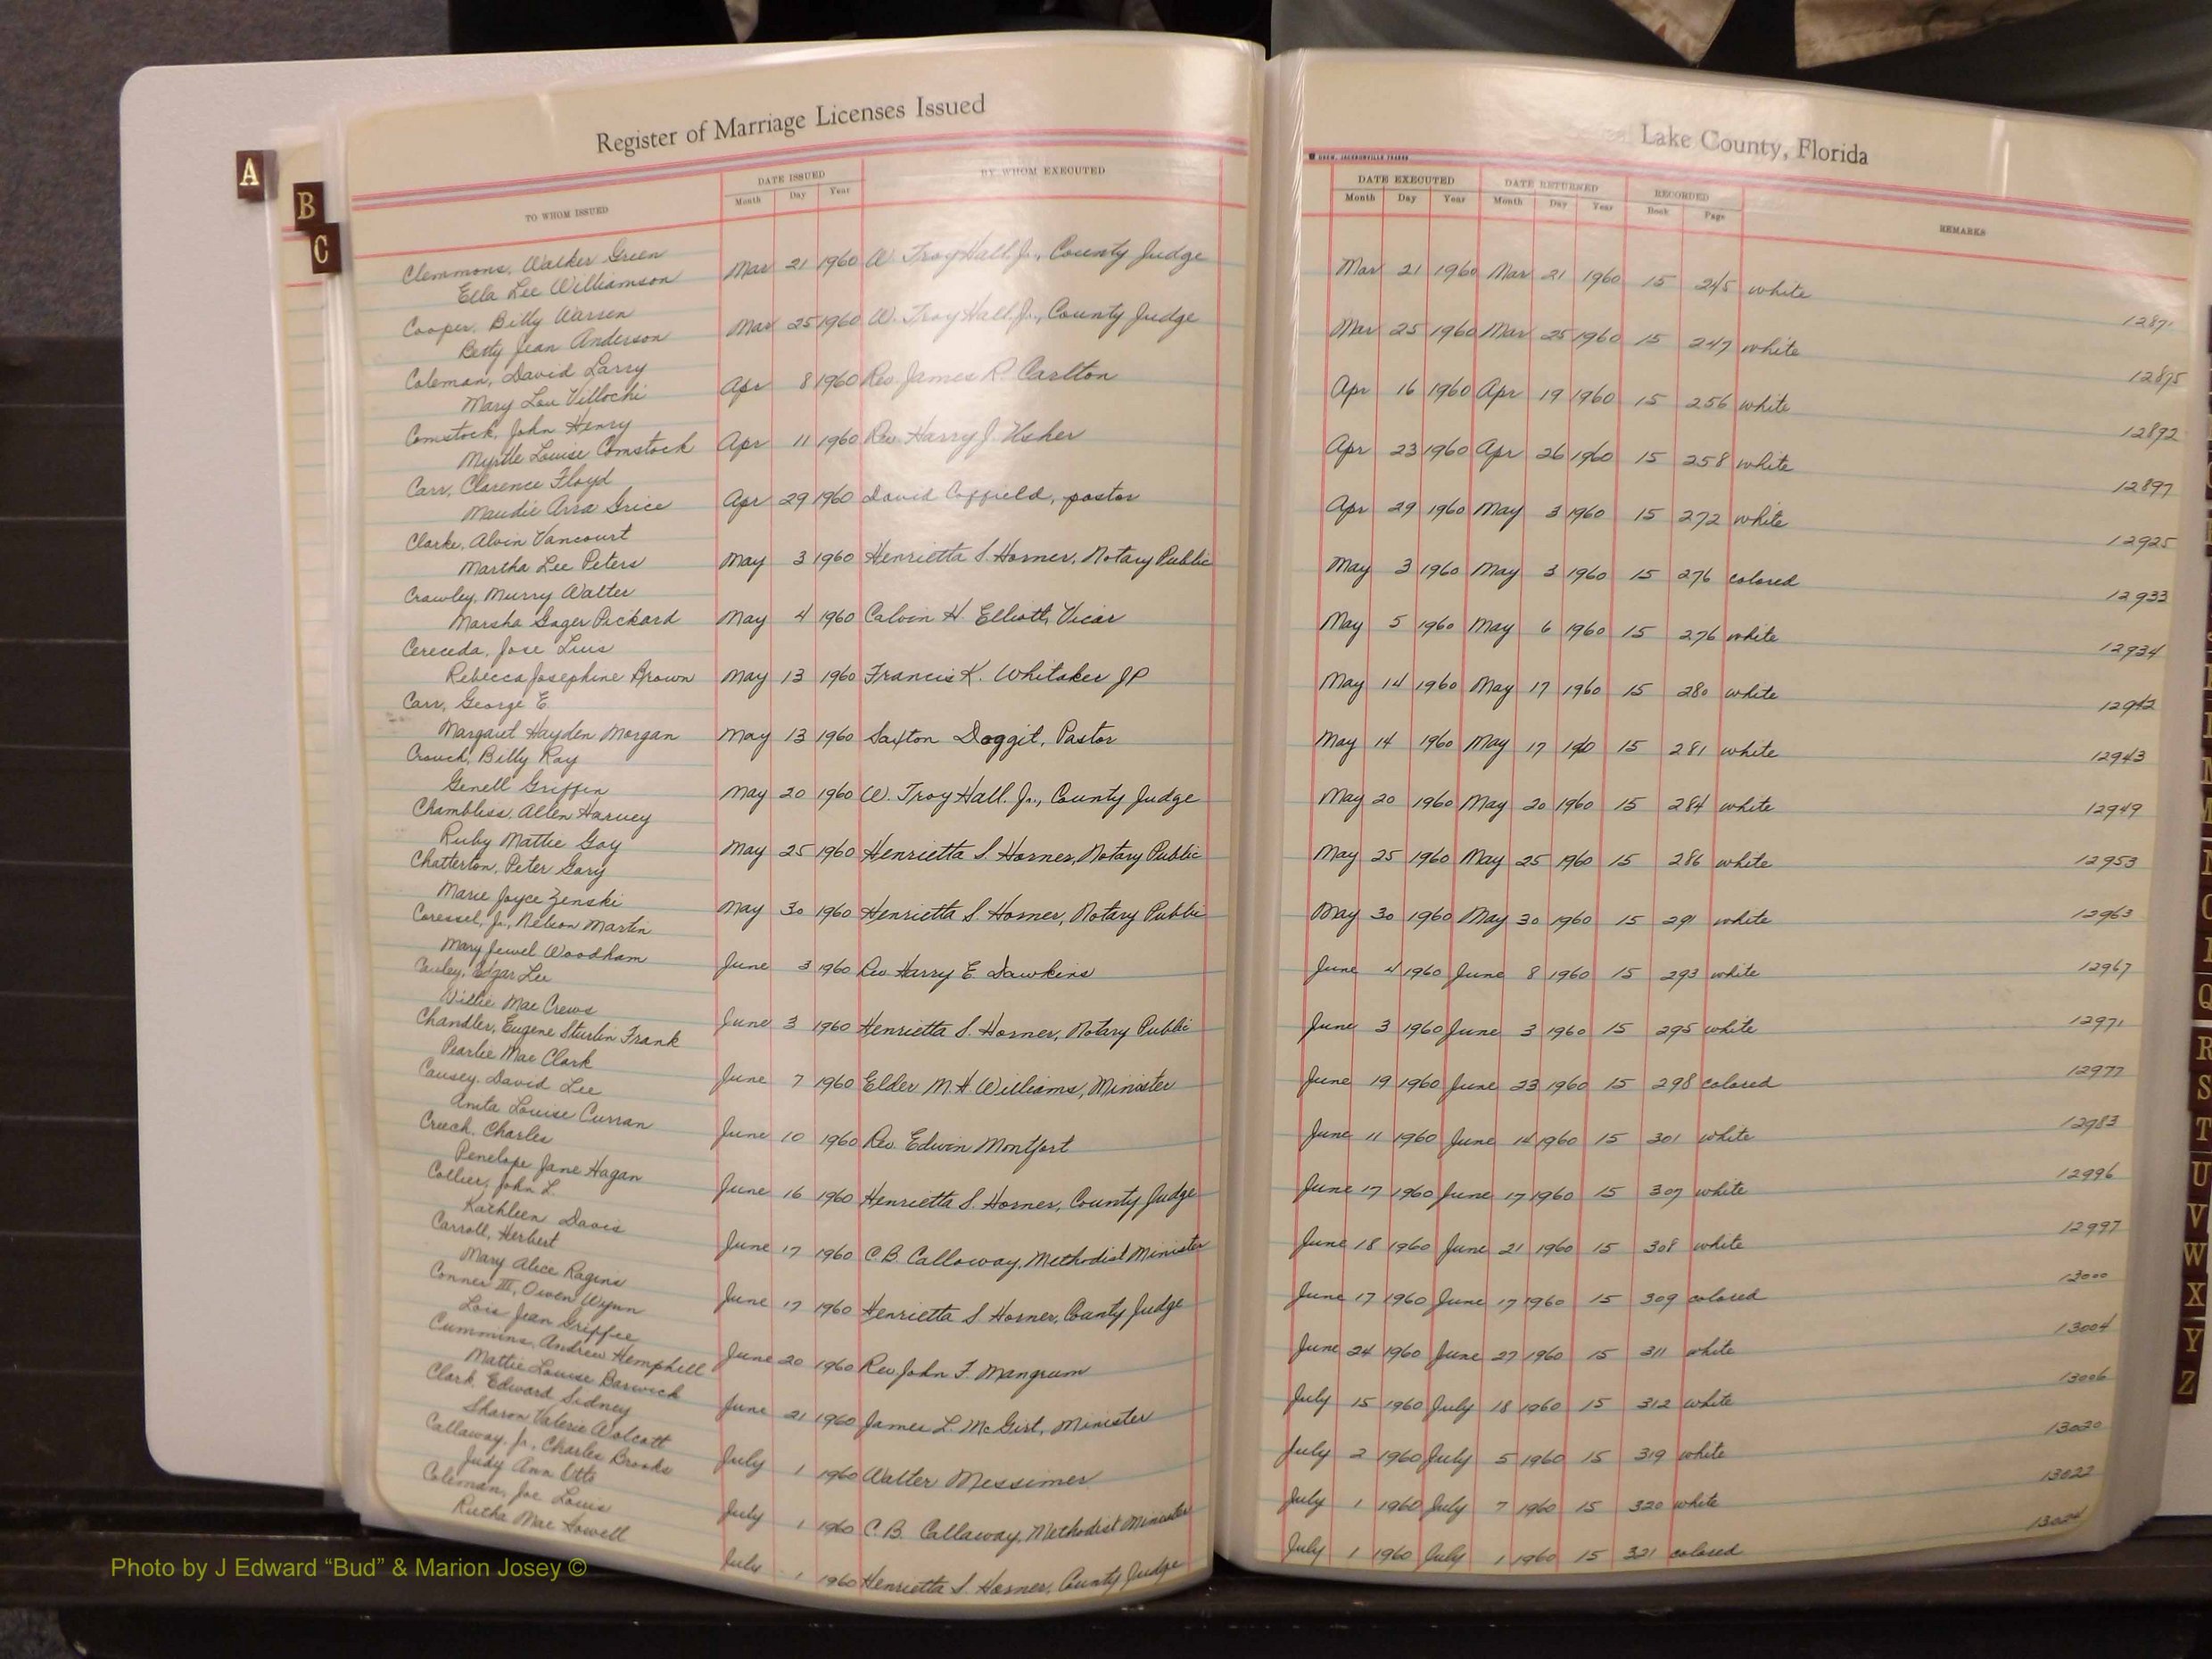 Register of Marriage Licenses Issued
Lake County, Florida
A
B
C
DREW, JACKSONVILLE
TO WHOM ISSUED
DATE ISSUED
Month Day Year
BY WHOM EXECUTED
DATE EXECUTED
Month Day Year
DATE RETURNED
Month Day Year
RECORDED
Book Page
REMARKS
Clemmons, Walker Green
Ella Lee Williamson
Mar 21 1960 W. Troy Hall, Jr., County Judge Mar 21 1960 Mar 21 1960 15 245 white
Cooper, Billy Warren
Betty Jean Anderson
Mar 25 1960 W. Troy Hall, Jr., County Judge Mar 25 1960 Mar 25 1960 15 247 white
12871
Coleman, David Larry
Mary Lou Villochi
Apr 8 1960 Rev. James R. Carlton Apr 16 1960 Apr 19 1960 15 256 white
12875
Comstock, John Henry
Myrtle Louise Comstock
Apr 11 1960 Rev. Harry J. Usher Apr 23 1960 Apr 26 1960 15 258 white
12892
Carr, Clarence Floyd
Maudie Arra Grice
Apr 29 1960 David Coffield, pastor Apr 29 1960 May 3 1960 15 272 white
12897
Clarke, Alvin Vancourt
Martha Lee Peters
May 3 1960 Henrietta S. Horner, Notary Public May 3 1960 May 3 1960 15 276 colored
12925
Crawley, Murry Walter
Marsha Gager Pickard
May 4 1960 Calvin H. Elliott, Vicar May 5 1960 May 6 1960 15 276 white
12933
Cereceda, Jose Luis
Rebecca Josephine Brown
May 13 1960 Francis K. Whitaker JP May 14 1960 May 17 1960 15 280 white
12934
Carr, George E.
Margaret Hayden Morgan
May 13 1960 Saxton Doggit, Pastor May 14 1960 May 17 190 15 281 white
12942
Crouch, Billy Ray
Genell Griffin
May 20 1960 W. Troy Hall, Jr., County Judge May 20 1960 May 20 1960 15 284 white
12943
Chambless, Allen Harvey
Ruby Mattie Goy
May 25 1960 Henrietta S. Horner, Notary Public May 25 1960 May 25 1960 15 286 white
12949
Chatterton, Peter Gary
Marie Joyce Zenski
May 30 1960 Henrietta S. Horner, Notary Public May 30 1960 May 30 1960 15 291 white
12953
Coressel, Jr., Nelson Martin
Mary Jewel Woodham
June 3 1960 Rev Harry E. Dawkins June 4 1960 June 8 1960 15 293 white
12963
Edgar Lee
Willie Mae Crews
June 3 1960 Henrietta S. Horner, Notary Public June 3 1960 June 3 1960 15 295 white
12967
Chandler, Eugene Sturlin Frank
Pearlie Mae Clark
June 7 1960 Elder M. H Williams, Minister June 19 1960 June 23 1960 15 298 colored
12971
Causey, David Lee
Anita Louise Curran
June 10 1960 Rev. Edwin Montfort June 11 1960 June 14 1960 15 301 white
12977
Creech, Charles
Penelope Jane Hagan
June 16 1960 Henrietta S. Horner, County Judge June 17 1960 June 17 1960 15 307 white
12983
Collier, John L.
Kathleen Davis
June 17 1960 C.B. Calloway, Methodist Minister June 18 1960 June 21 1960 15 308 white
12996
Carroll, Herbert
Mary Alice Ragins
June 17 1960 Henrietta S Horner, County Judge June 17 1960 June 17 1960 15 309 colored
12997
Conner III, Owen Wynn
Lois Jean Griffee
June 20 1960 Rev John F. Mangrum June 24 1960 June 27 1960 15 311 white
13000
Cummins, Andrew Hemphill
Mattie Louise Barwick
June 21 1960 James L. McGirt, Minister July 15 1960 July 18 1960 15 312 white
13004
Clark, Edward Sidney
Sharon Valerie Wolcott
July 1 1960 Walter Messimer July 2 1960 July 5 1960 15 319 white
13006
Callaway, Jr., Charles Brooks
Judy Ann Otto
July 1 1960 C.B. Callaway, Methodist Minister July 1 1960 July 7 1960 15 320 white
13020
Coleman, Joe Louis
Rutha Mae Howell
July 1 1960 Henrietta S. Horner, County Judge July 1 1960 July 1 1960 15 321 colored
13022
13024
Q
R
S
T
U
V
W
X
Y
Z
Photo by J Edward “Bud” & Marion Josey ©